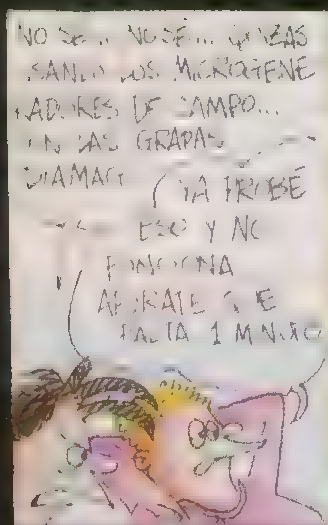 NO SE... NO SÉ... QUIZAS
LOS MICROGENE
ADORES DE CAMPO...
EN LAS GRAPAS
YA PROBÉ
ESO Y NO
FUNCIONA
APÚRATE QUE
FALTA 1 MINUTO